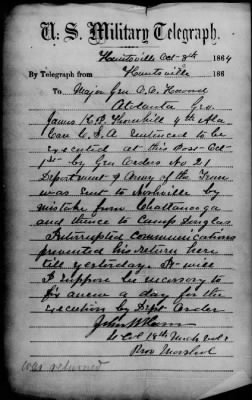 U. S. Military Telegraph.
Huntsville Oct 8th 1864
By Telegraph from Huntsville 186
To Major Gen O. O. Howard
Atlanta Geo.
James R. P. Thornhill 4th Ala
Cav C. S. A Sentenced to be
executed at this Post Oct
1st by Gen Orders No 21
Department & Army of the Tenn
was sent to Nashville by
mistake from Chattanooga
and thence to Camp Douglas
Interrupted Communications
prevented his return here
till yesterday. It will
I suppose be necessary to
fix anew a day for the
execution by Dept Order
John W Horn
Lt Col 18th Mich Vols
Prov Marshal
was returned